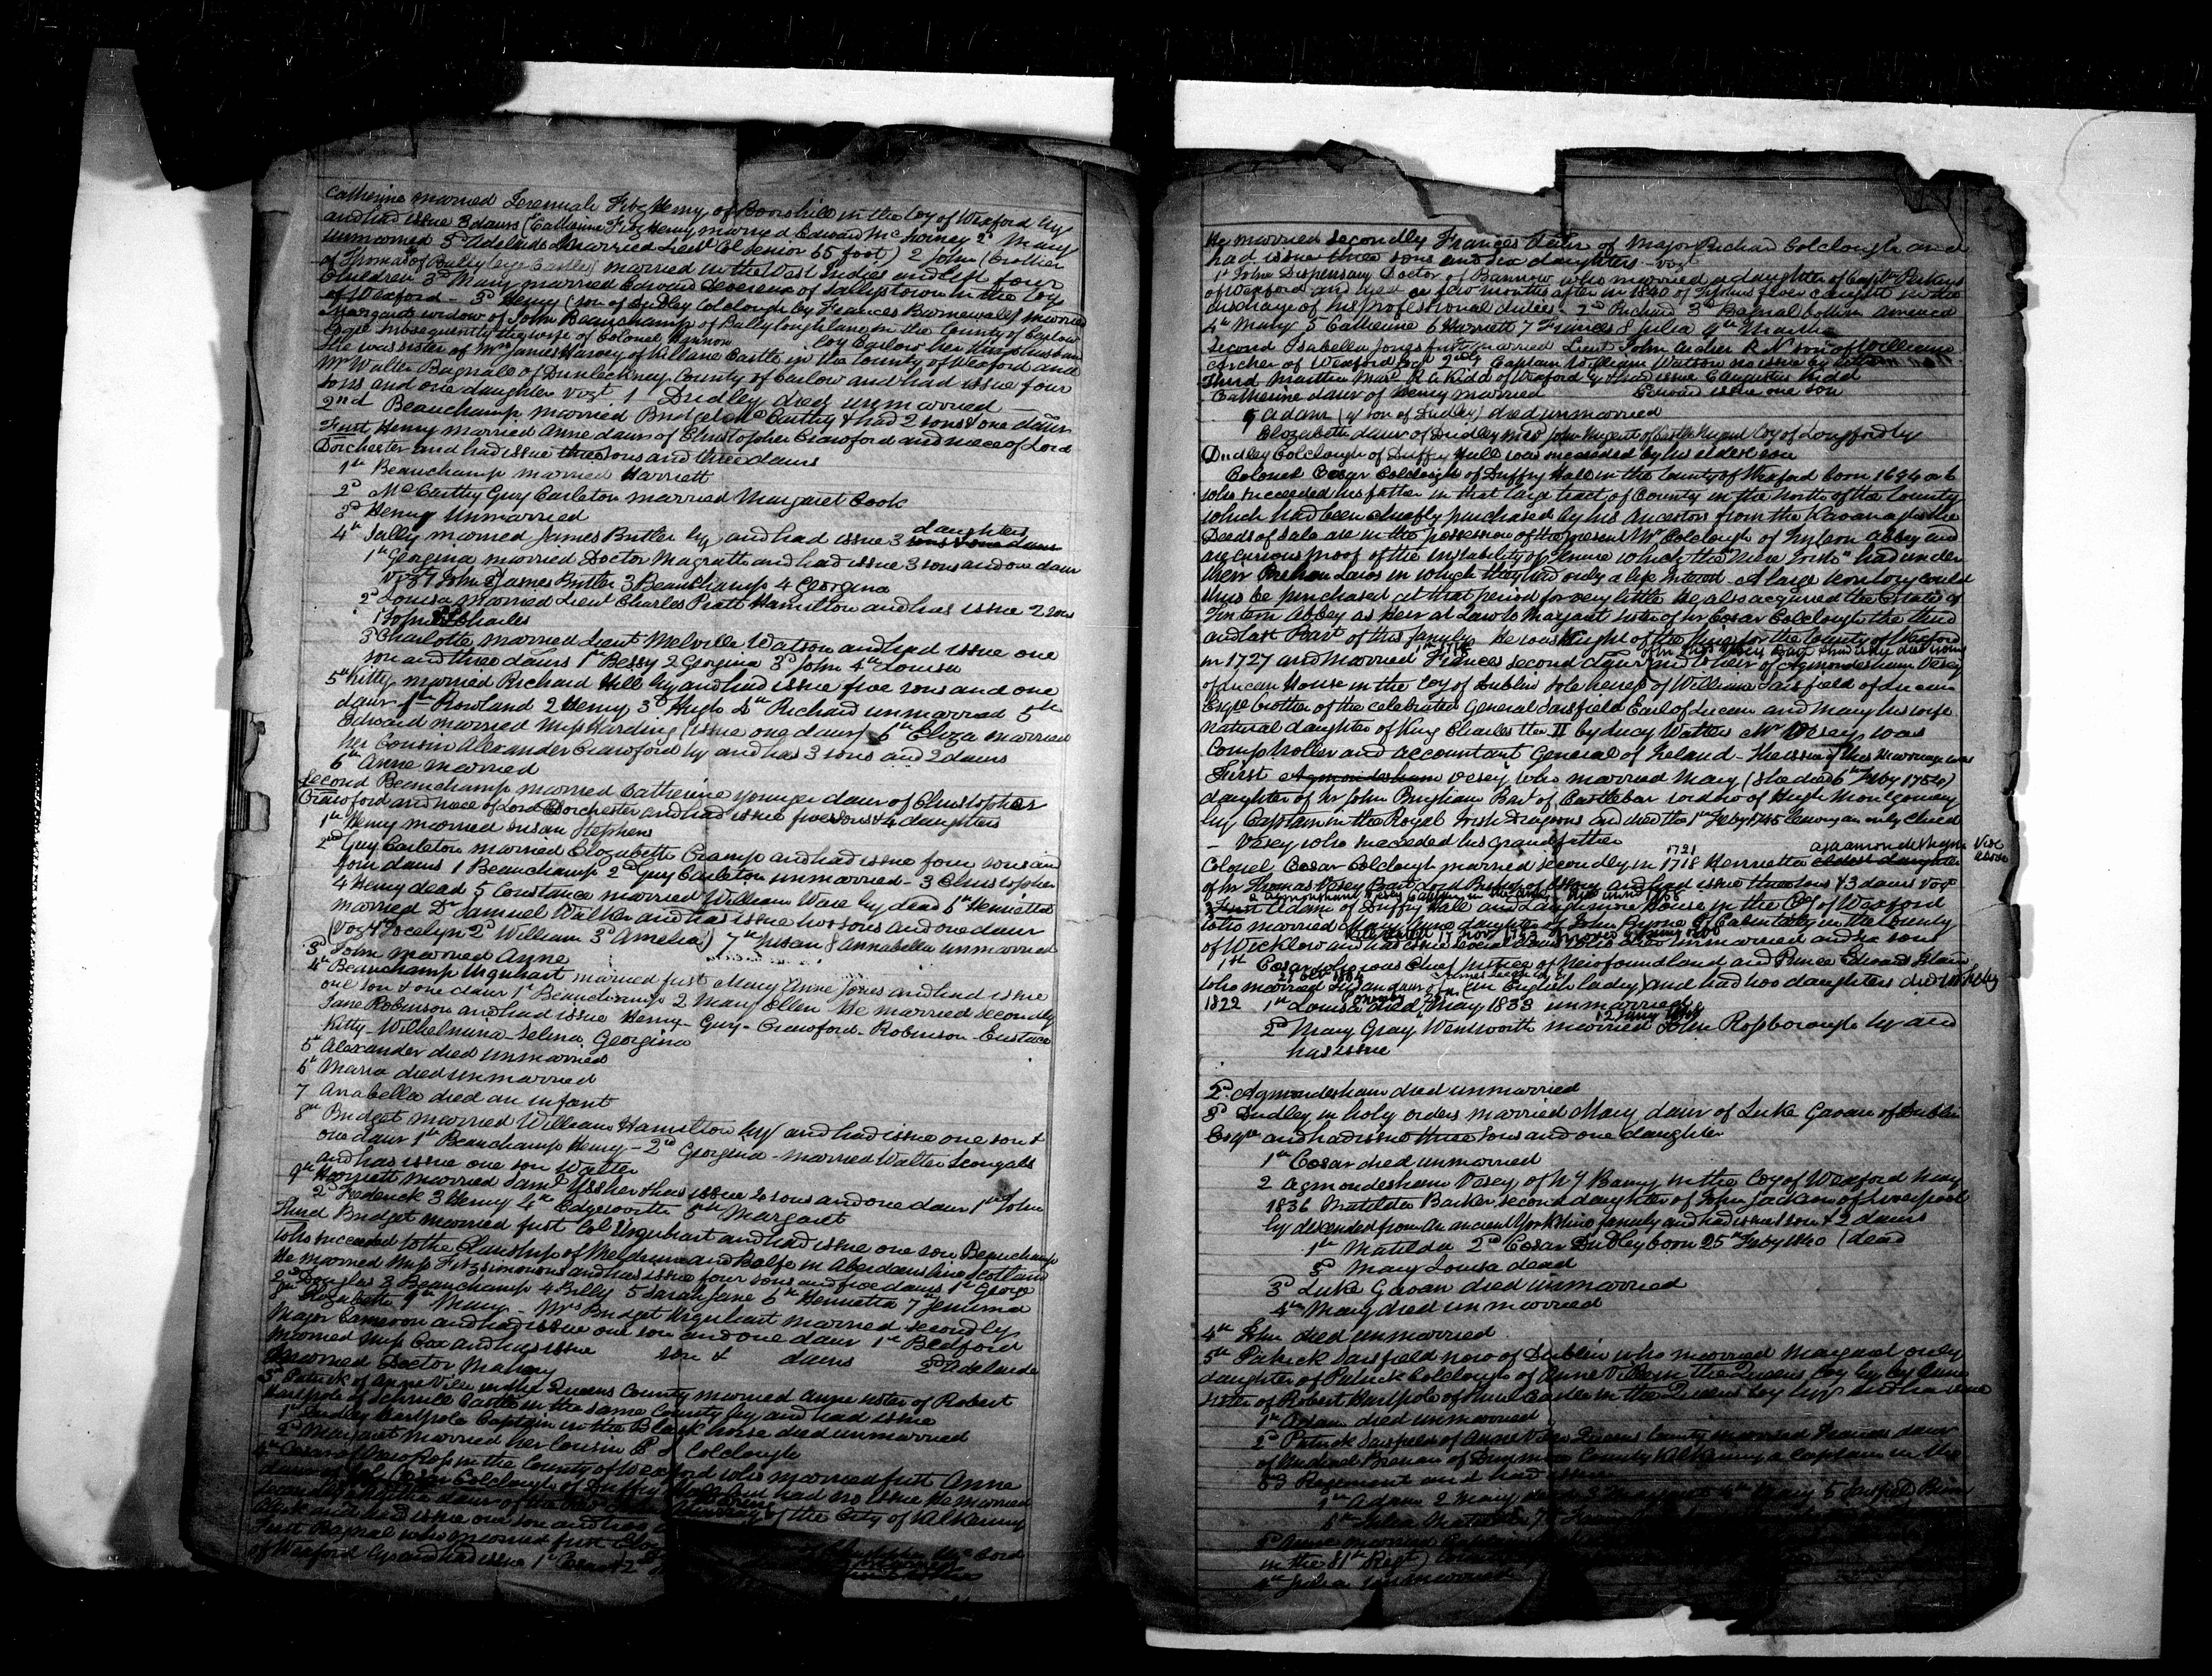 Catherine married Jeremiah Fitz Henry of Boro hill in the Coy of Wexford by
and had issue 3 daurs (Catherine Fitz Henry married Edward Mc 2d Mary
unmarried 3d Adelaide married Lieut Col Senior 65 foot) 2 John (brother
of Thomas of Bally Castle) married in the West Indies and left four
Children 3d Mary married Edward Devereux of Sallystown in the Coy
of Wexford - 3d Henry (son of Dudley Colclough by Frances Barnewall) married
Margaret widow of John Beauchamp of Ballyloughlane in the County of Carlow
Esqre subsequently the wife of Colonel Coy Carlow her third husband
She was sister of Mrs James Harvey of Killane Castle in the County of Wexford and
Mr Walter Bagnall of Dunleckney County of Carlow and had issue four
sons and one daughter vizt 1 Dudley died unmarried
2nd Beauchamp married Bridget McCarthy & had 2 sons & one daur
First Henry married Anne daur of Christopher Crawford and niece of Lord
Dorchester and had issue three sons and three daurs
1st Beauchamp married Harriett
2d McCarthy Guy Carleton married Margaret Cook
3d Henry unmarried
daughters
4th Sally married James Butler by and had issue 3 sons & one daur
1st Georgina married Doctor Magrath and had issue 3 sons and one daur
vizt 1 John 2 James Butler 3 Beauchamp 4 Georgina
2d Louisa married Lieut Charles Pratt Hamilton and has issue 2 sons
1 John 2d Charles
3 Charlotte married Lieut Melville Watson and had issue one
son and three daurs 1st Bessy 2 Georgina 3d John 4th Louisa
5th Kitty married Richard Hill by and had issue five sons and one
daur 1st Rowland 2 Henry 3d Hugh 4th Richard unmarried 5th
Edward married Miss Harding (issue one daur) 6th Eliza married
her Cousin Alexander Crawford by and has 3 sons and 2 daurs
6th Anne married
Second Beauchamp married Catherine younger daur of Christopher
Crawford and niece of Lord Dorchester and had issue five sons & 4 daughters
1st Henry married Susan Stephens
2nd Guy Carleton married Elizabeth Cramp and had issue four sons and
four daurs 1 Beauchamp 2d Guy Carleton unmarried - 3 Christopher
4 Henry dead 5 Constance married William Ware by dead 6th Henrietta
married Dr Samuel Walker and has issue two sons and one daur
(vizt 1 Jocelyn 2d William 3d Amelia) 7th Susan 8 Annabella unmarried
3d John married Anne
4th Beauchamp Urquhart married first Mary Anne Jones and had issue
one son & one daur 1st Beauchamp 2 Mary Ellen He married secondly
Jane Robinson and had issue Henry - Guy - Crawford - Robinson - Eustace
Kitty - Wilhelmina - Selina Georgina
5th Alexander died unmarried
6th Maria died unmarried
7 Anabella died an infant
8th Bridget married William Hamilton by and had issue one son &
one daur 1st Beauchamp Henry - 2nd Georgina - married Walter
and has issue one son Walter
9th Harriett married Saml Ussher & has issue sons and one daur 1st John
2d Frederick 3 Henry 4th Edgeworth 5th Margaret
Third Bridget married first Col Urquhart and had issue one son Beauchamp
who succeeded to the Lairdship of Meldrum and in Aberdeenshire Scotland
He married Miss Fitzsimons and has issue four sons and five daurs 1st George
2d Douglas 3 Beauchamp 4 Billy 5 Sarah Jane 6th Henrietta 7th Jemima
8th Elizabeth 9th Mary - Mrs Bridget Urquhart married secondly
Major Cameron and had issue one son and one daur 1st Bedford
married Miss Cox and has issue son & daurs 2d Adelaide
married Doctor Mahony
3d Patrick of Anne Ville in the Queens County married Anne sister of Robert
Hartpole of Shrule Castle in the same County by and had issue
1st Dudley Hartpole Captain in the Black horse died unmarried
2d Margaret married her Cousin P S Colclough
4th Cesar of New Ross in the County of Wexford who married first Anne
daur of Col Cesar Colclough of Duffry Hall and had no issue He married
daur of the of the City of Kilkenny
and had issue one son and
First Bagnal who married first
of Wexford by and had issue 1st Cesar & 2d
He married secondly Frances sister of Major Richard Colclough and
had issue three sons and six daughters - vizt
1st John Dispensary Doctor of Bannow who married a daughter of Captn Parkins
of Wexford and died a few months after in 1840 of Typhus fever caught in the
discharge of his professional duties - 2nd Richard 3d Bagnal both in America
4th Mary 5 Catherine 6 Harriett 7 Frances 8 Julia 9th Martha
Second Isabella Jones first married Lieut John Archer R N son of William
Archer of Wexford Esqr 2ndly Captain William Watson no issue
Third Martha mard R G Kidd of Wexford by & had issue Augustus Kidd
Catherine daur of Henry married Edward issue one son
5 Adam (y son of Dudley) died unmarried
Elizabeth daur of Dudley mard John Nugent of Castle Nugent Coy of Longford by
Dudley Colclough of Duffry Hall was succeeded by his eldest son
Colonel Cesar Colclough of Duffry Hall in the County of Wexford born 1694 or 6
who succeeded his father in that large tract of Country in the north of the County
which had been chiefly purchased by his Ancestors from the Kavanaghs the
Deeds of Sale are in the possession of the present Mr Colclough of Tintern Abbey and
are curious proof of the instability of Tenure which the "Mere Irish" had under
their Brehon Laws in which they had only a life interest - A large territory could
thus be purchased at that period for very little He also acquired the Estate of
Tintern Abbey as Heir at Law to Margaret sister of Sir Cesar Colclough the third
and last Bart of this family He was Knight of the Shire for the County of Wexford
in 1727 and married Frances second daur and coheir of Agmondesham Vesey
of Lucan House in the Coy of Dublin sole heiress of William Sarsfield of Lucan
Esqre brother of the celebrated General Sarsfield Earl of Lucan and Mary his wife
Natural daughter of King Charles the II by Lucy Watters Mr Vesey was
Comptroller and Accountant General of Ireland - The issue of this Marriage was
First Agmondesham Vesey who married Mary (she died 6th Feby 1754)
daughter of Sir John Bingham Bart of Castlebar widow of Hugh Montgomery
by Captain in the Royal Irish Dragoons and died the 1st Feby 1745 leaving an only Child
- Vesey who succeeded his grandfather
1721 Agmondesham Vide
Colonel Cesar Colclough married secondly in 1718 Henrietta eldest daughter above
of Sir Thomas Vesey Bart Lord Bishop of Ossory and had issue three sons & 3 daurs vizt
First Adam of Duffry Hall and House in the Coy of Wexford
who married Mary Anne daughter of John Byrne of Cabinteely in the County
of Wicklow and had issue several daurs who died unmarried and six sons
1st Cesar who was Chief Justice of Newfoundland and Prince Edward Island
27 Oct 1804 James
who married Susan daur of (an English Lady) and had two daughters died in Feby
1822 1st Louisa died May 1833 unmarried
2d Mary Gray Wentworth married John Rossborough by and
has issue
2d Agmondesham died unmarried
3d Dudley in holy orders married Mary daur of Luke Gavan of Dublin
Esqre and had issue three sons and one daughter
1st Cesar died unmarried
2 Agmondesham Vesey of in the Coy of Wexford mard
1836 Matilda Barker second daughter of John Jackson of Liverpool
by descended from an ancient Yorkshire family and had issue 1 son & 2 daurs
1st Matilda 2d Cesar Dudley born 25th Feby 1840 (dead
3d Mary Louisa dead
3d Luke Gavan died unmarried
4th Mary died unmarried
4th John died unmarried
5th Patrick Sarsfield now of Dublin who married Margaret only
daughter of Patrick Colclough of Anne Ville in the Queens Coy by Anne
sister of Robert Hartpole of Shrule Castle in the Queens Coy by and has issue
1st Adam died unmarried
2d Patrick Sarsfield of Anne Ville Queens County married Frances daur
of Michael Brenan of County Kilkenny a Captain in the
63 Regiment and had issue
1st Adam 2 Mary 4th 5 Sarsfield
6th Julia Matilda 7th
3d Anne married
in the 81st Regt)
4th Julia unmarried